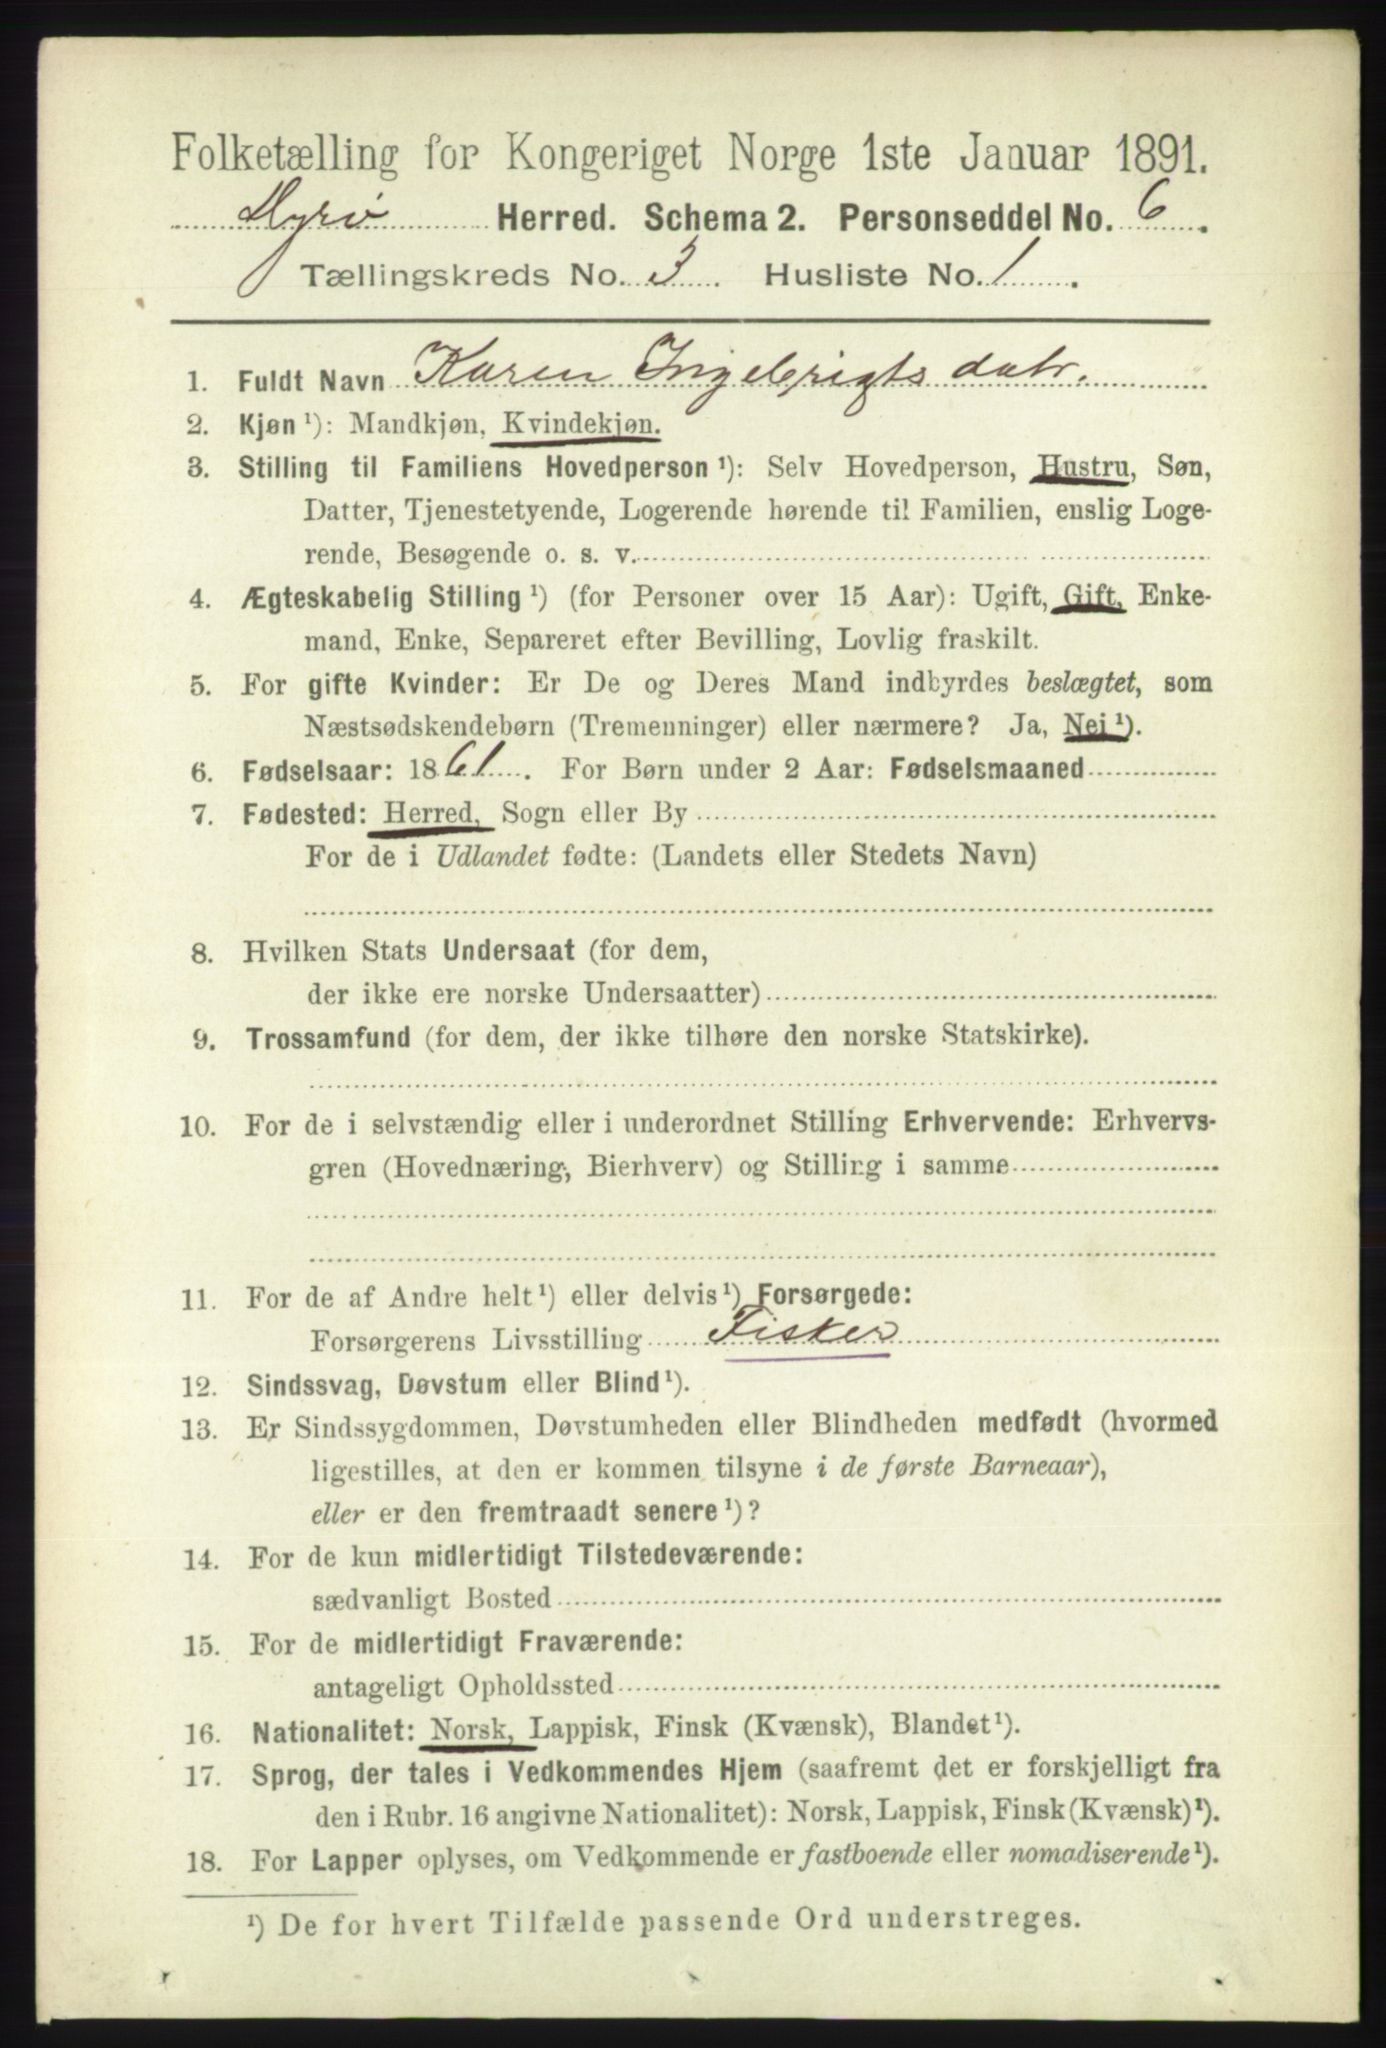 Folketælling for Kongeriget Norge 1ste Januar 1891.
Dyrø Herred. Schema 2. Personseddel No. 6.
Tællingskreds No. 3. Husliste No. 1.
1. Fuldt Navn Karen Ingebrigts datr.
2. Kjøn ¹): Mandkjøn, Kvindekjøn.
3. Stilling til Familiens Hovedperson ¹): Selv Hovedperson, Hustru, Søn,
Datter, Tjenestetyende, Logerende hørende til Familien, enslig Loge-
rende, Besøgende o. s. v.
4. Ægteskabelig Stilling ¹) (for Personer over 15 Aar): Ugift, Gift, Enke-
mand, Enke, Separeret efter Bevilling, Lovlig fraskilt.
5. For gifte Kvinder: Er De og Deres Mand indbyrdes beslægtet, som
Næstsødskendebørn (Tremenninger) eller nærmere? Ja, Nei ¹).
6. Fødselsaar: 1861. For Børn under 2 Aar: Fødselsmaaned
7. Fødested: Herred, Sogn eller By
For de i Udlandet fødte: (Landets eller Stedets Navn)
8. Hvilken Stats Undersaat (for dem,
der ikke ere norske Undersaatter)
9. Trossamfund (for dem, der ikke tilhøre den norske Statskirke).
10. For de i selvstændig eller i underordnet Stilling Erhvervende: Erhvervs-
gren (Hovednæring, Bierhverv) og Stilling i samme
11. For de af Andre helt ¹) eller delvis ¹) Forsørgede:
Forsørgerens Livsstilling Fisker
12. Sindssvag, Døvstum eller Blind ¹).
13. Er Sindssygdommen, Døvstumheden eller Blindheden medfødt (hvormed
ligestilles, at den er kommen tilsyne i de første Barneaar),
eller er den fremtraadt senere ¹)?
14. For de kun midlertidigt Tilstedeværende:
sædvanligt Bosted
15. For de midlertidigt Fraværende:
antageligt Opholdssted
16. Nationalitet: Norsk, Lappisk, Finsk (Kvænsk), Blandet ¹).
17. Sprog, der tales i Vedkommendes Hjem (saafremt det er forskjelligt fra
den i Rubr. 16 angivne Nationalitet): Norsk, Lappisk, Finsk (Kvænsk) ¹).
18. For Lapper oplyses, om Vedkommende er fastboende eller nomadiserende ¹).
¹) De for hvert Tilfælde passende Ord understreges.